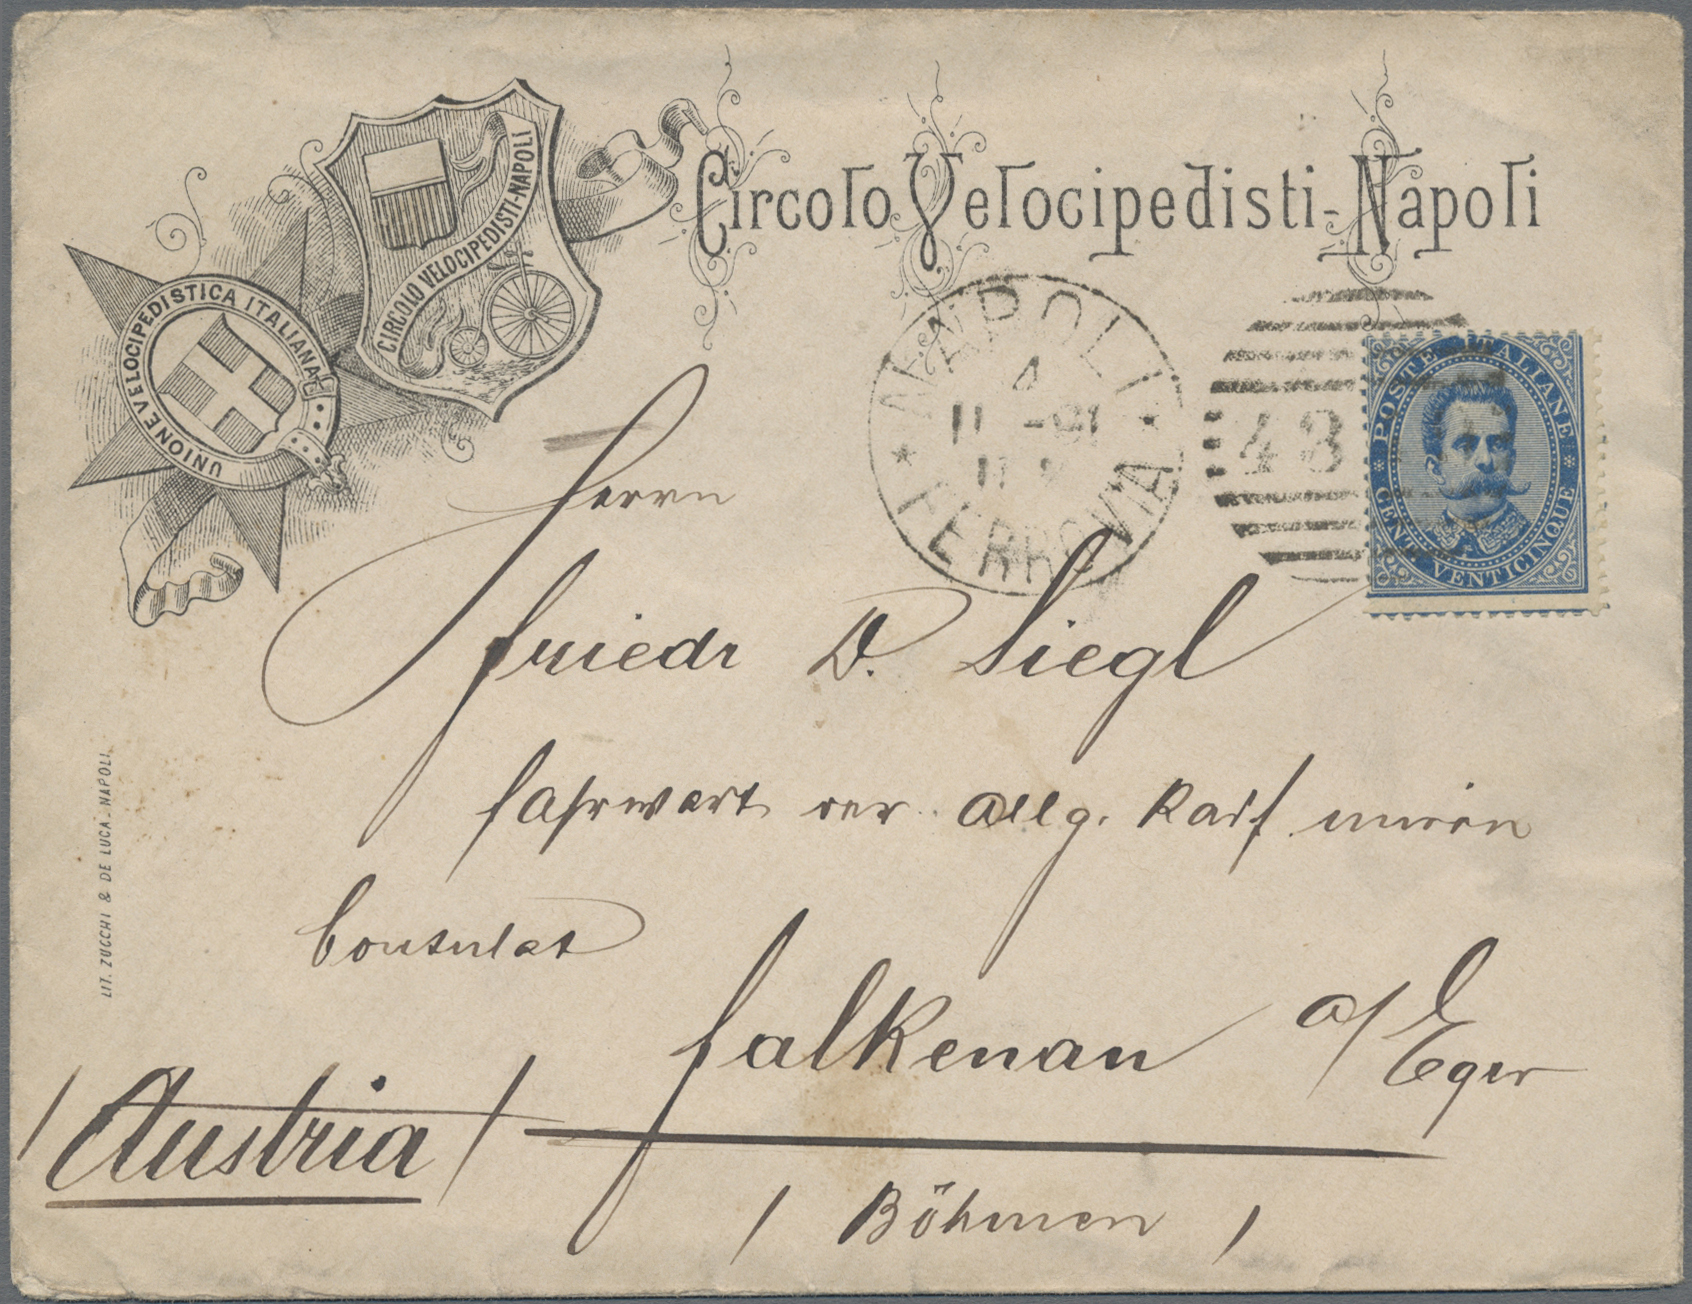 Circolo Velocipedisti-Napoli
CIRCOLO VELOCIPEDISTI-NAPOLI
UNIONE VELOCIPEDISTICA ITALIANA
NAPOLI
4
11 -91
FERROVIA
43
POSTE ITALIANE
CENT. VENTICINQUE
Herrn
Friedr D. Siegl
Fahrwart der Allg. Radf
Consulat
Falkenau a/Eger
/Austria/
/Böhmen/
LIT. ZUCCHI & DE LUCA. NAPOLI.